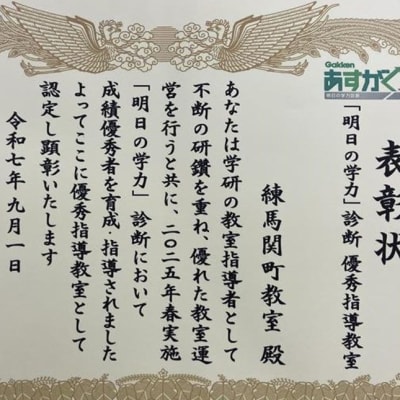 表彰状
Gakken
あすがく
明日の学力診断
「明日の学力」診断 優秀指導教室
練馬関町教室 殿
あなたは学研の教室指導者として
不断の研鑽を重ね、優れた教室運
営を行うと共に、二〇二五年春実施
「明日の学力」診断において
成績優秀者を育成・指導されました
よってここに優秀指導教室として
認定し顕彰いたします
令和七年九月一日